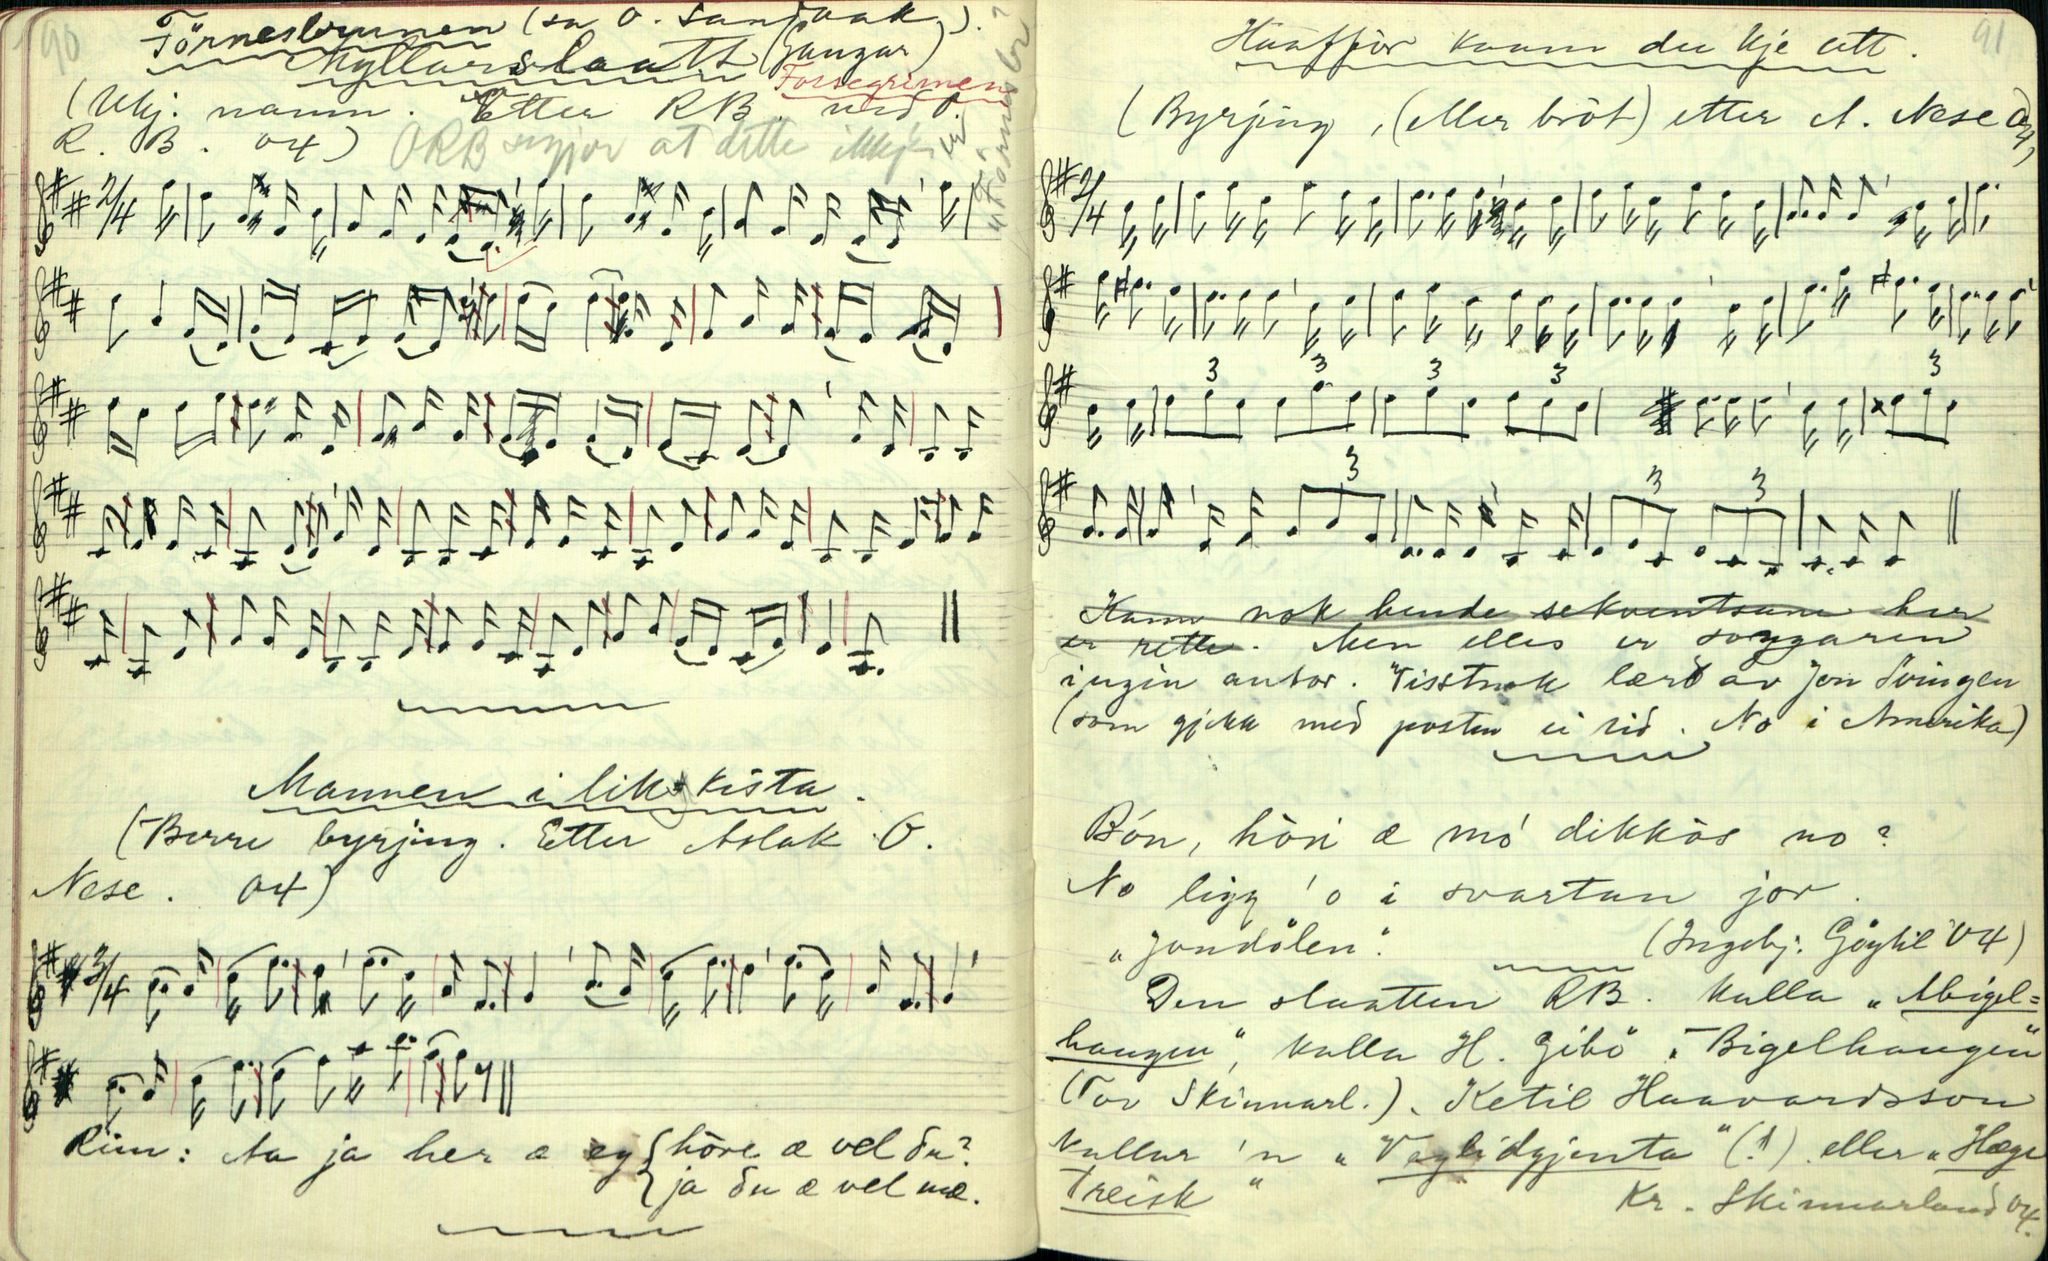 90
Förnesbrunen (sa O. Sandbak).
Myllarslaatt (Gangar)
Fossegrimen
(Ukj. namn. Etter RB. med O.
R. B. 04)
ORB segjer at dette ikkje er
"Förnesbr."
2/4
Mannen i likkista.
(Berre byrjing. Etter Aslak O.
Nese. 04)
3/4
Rim: Aa ja her æ eg { höre æ vel du?
{ ja du æ vel mæ.
91
Haafför kaam du kje att.
(Byrjing, (eller bröt) etter A. Nese 04)
2/4
3 3 3 3 3
3 3 3
Kann nok hende sekventsane her
er rette. Men elles er songaren
ingin autor. Visstnok lært av Jon Svingen
(som gjekk med posten ei tid. No i Amerika)
Bón, höri æ mó dikkös no?
No ligg 'o i svartan jor.
"Jondölen".
(Ingebj. Göytil 04)
Den slaatten RB. kalla "Abigel=
haugen", kalla H. Gibö "Bigelhaugen"
(Tov Skinnarl.). Ketil Haavardsson
kallar 'n "Veglidgjenta" (!) eller "Hæge
Treisk"
Kr. Skinnarland 04.